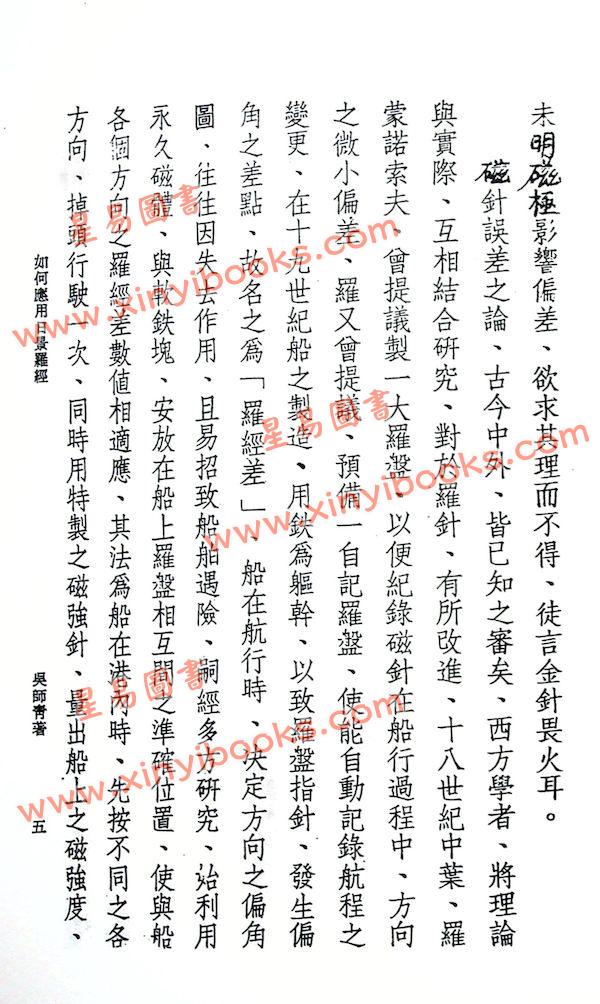 未明磁極影響偏差、欲求其理而不得、徒言金針畏火耳。
磁針誤差之論、古今中外、皆已知之審矣、西方學者、將理論
與實際、互相結合研究、對於羅針、有所改進、十八世紀中葉、羅
蒙諾索夫、曾提議製一大羅盤、以便紀錄磁針在船行過程中、方向
之微小偏差、羅又曾提議、預備一自記羅盤、使能自動記錄航程之
變更、在十九世紀船之製造、用鉄爲軀幹、以致羅盤指針、發生偏
角之差點、故名之爲「羅經差」、船在航行時、決定方向之偏角
圖、往往因失去作用、且易招致船舶遇險、嗣經多方研究、始利用
永久磁體、與軟鉄塊、安放在船上羅盤相互間之準確位置、使與船
各個方向之羅經差數值相適應、其法爲船在港內時、先按不同之各
方向、掉頭行駛一次、同時用特製之磁強針、量出船上之磁強度、
如何應用日景羅經
吳師青著
五
星易圖書
www.xinyibooks.com
星易圖書
www.xinyibooks.com
星易圖書
www.xinyibooks.com